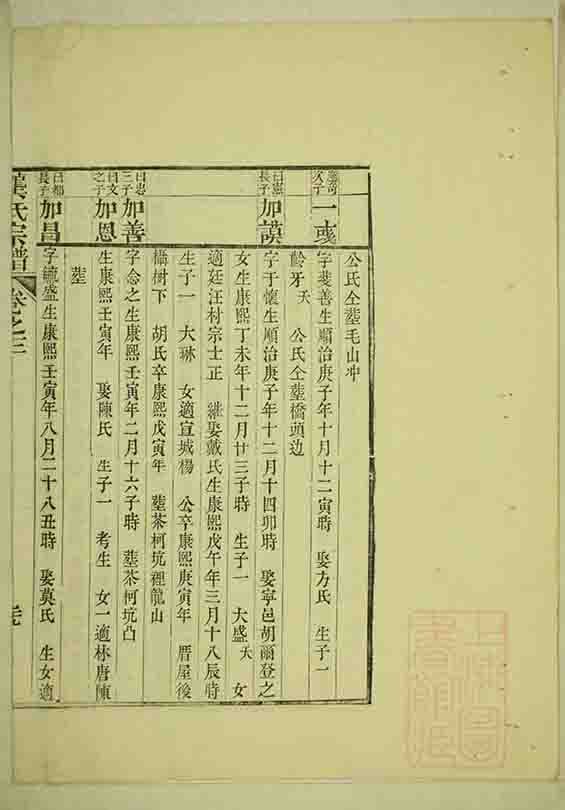 公氏仝塟毛山冲
一彧
字斐善生順治庚子年十月十二寅時 娶方氏 生子一
齡牙夭 公氏仝塟橋頭边
曰憲長子
加謨
字于懷生順治庚子年十二月十四卯時 娶寧邑胡爾登之
女生康熙丁未年十二月廿三子時 生子一 大盛夭 女
適廷汪村宗士正 継娶戴氏生康熙戊午年三月十八辰時
生子一 大琳 女適宣城楊 公卒康熙庚寅年 厝屋後
樹下 胡氏卒康熙戊寅年 塟茶柯坑裡龍山
曰忠三子
加善
字念之生康熙壬寅年二月十六子時 塟茶柯坑凸
曰文之子
加恩
生康熙壬寅年 娶陳氏 生子一 考生 女一適林唐陳
塟
曰都長子
加昌
字毓盛生康熙壬寅年八月二十八丑時 娶莫氏 生女適
氏宗譜 卷之三